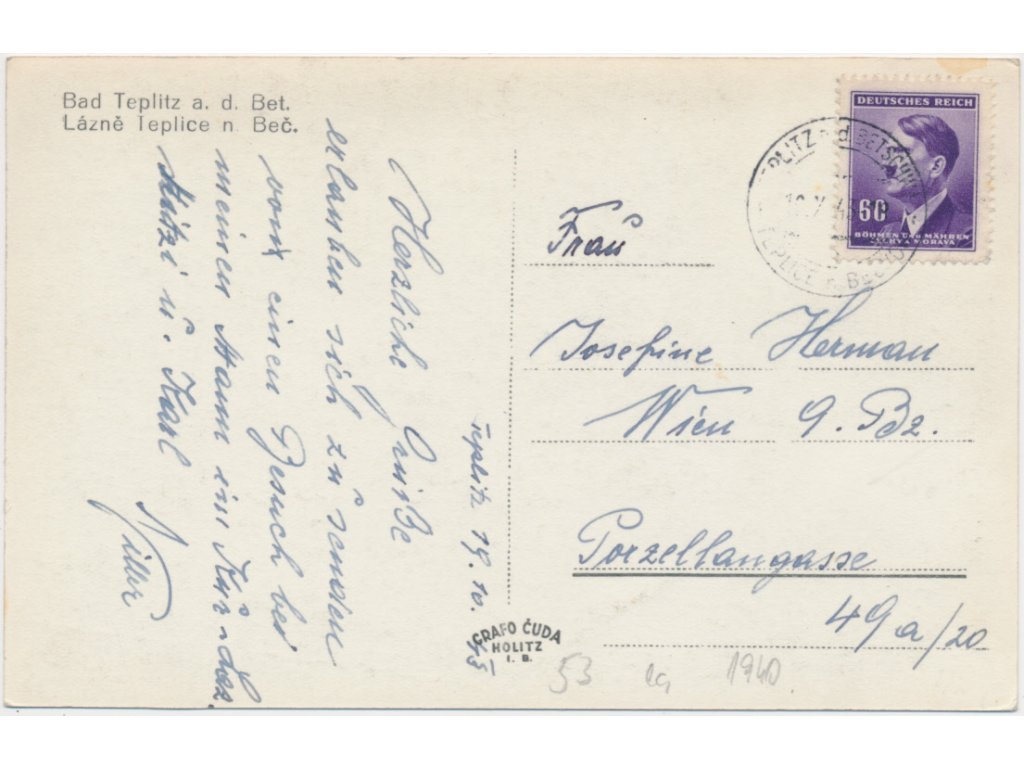 Bad Teplitz a. d. Bet.
Lázně Teplice n Beč.
Teplitz 19. 10. 43
Herzliche Grüße
erlauben sich zu senden
von einen Besuch bei
meinen Mann im Kur-Laz.
Mitzi u. Karl
DEUTSCHES REICH
60
BÖHMEN UND MÄHREN
ČECHY A MORAVA
TEPLITZ a. d. BETSCHWA
TEPLICE n. BEČVOU
Frau
Josefine Herman
Wien 9. Bz.
Porzellangasse
49a/20
GRAFO ČUDA
HOLITZ
I. B.
53 1940